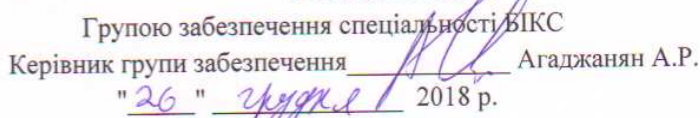 Групою забезпечення спеціальності БІКС
Керівник групи забезпечення____________ Агаджанян А.Р.
"26" грудня 2018 р.